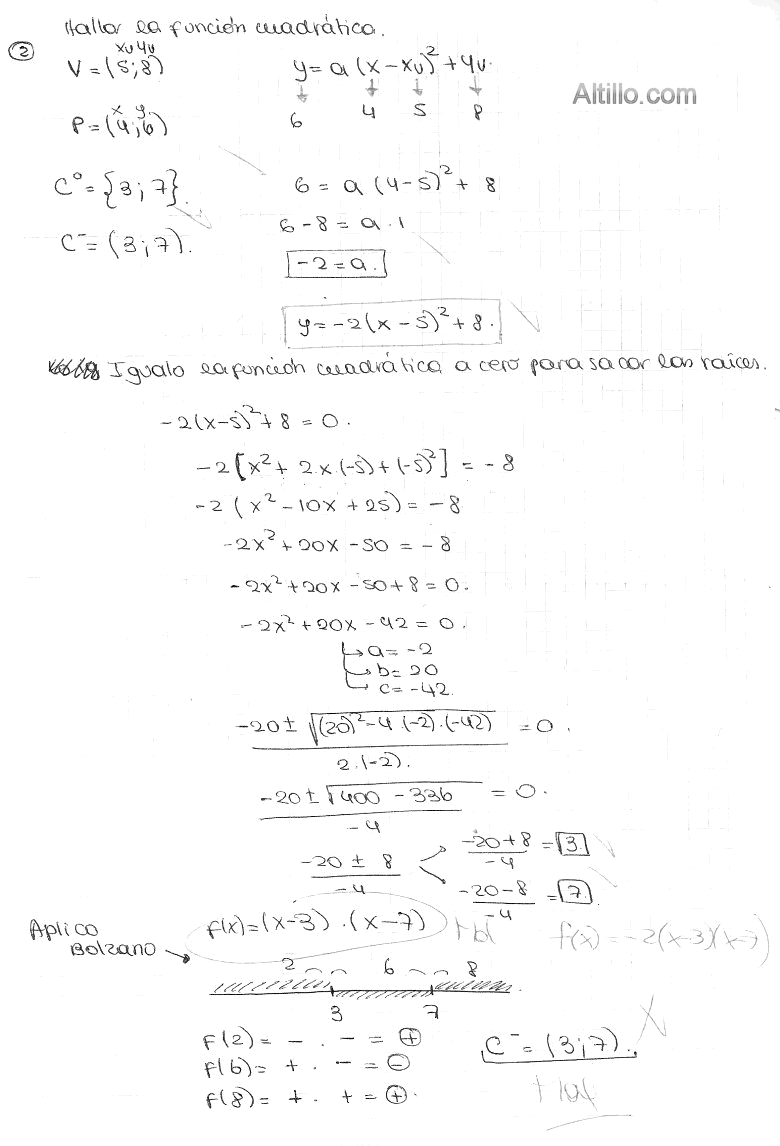 Hallar la función cuadrática.
②
xv yv
V = (5;8)
y = a (x - xv)² + yv
6 4 5 8
Altillo.com
x y
P = (4;6)
C° = {3;7}.
6 = a (4-5)² + 8
C⁻ = (3;7).
6 - 8 = a . 1
-2 = a.
y = -2(x - 5)² + 8.
Igualo la función cuadrática a cero para sacar las raíces.
-2(x-5)² + 8 = 0.
-2[x² + 2.x.(-5) + (-5)²] = -8
-2 (x² - 10x + 25) = -8
-2x² + 20x - 50 = -8
-2x² + 20x - 50 + 8 = 0.
-2x² + 20x - 42 = 0.
a = -2
b = 20
c = -42.
-20 ± √(20)² - 4.(-2).(-42) = 0.
2.(-2).
-20 ± √400 - 336 = 0.
-4
-20 + 8 = 3.
-4
-20 ± 8
-4
-20 - 8 = 7.
-4
Aplico Bolzano
f(x) = (x-3) . (x-7)
f(x) = -2(x-3)(x-7)
2 6 8
3 7
f(2) = - . - = ⊕
f(6) = + . - = ⊖
f(8) = + . + = ⊕.
C⁻ = (3;7).